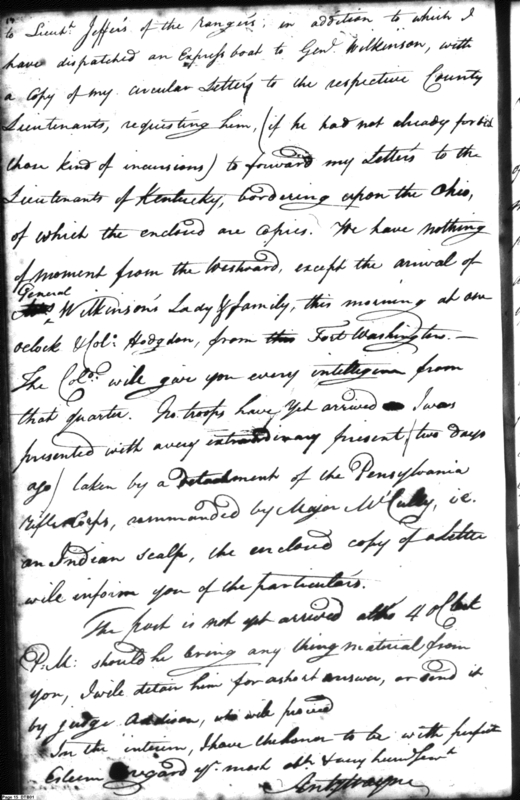 to Lieut. Jeffers of the rangers, in addition to which I
have dispatched an Express boat to Genl. Wilkinson, with
a Copy of my circular Letters to the respective County
Lieutenants, requesting him, (if he had not already forbid
those kind of incursions) to forward my Letters to the
Lieutenants of Kentucky, bordering upon the Ohio,
of which the enclosed are Copies. We have nothing
of moment from the Westward, except the arrival of
General
Wilkinson's Lady & family, this morning at one
oclock & Col: Hodgdon, from Fort Washington. —
The Colo. will give you every intelligence from
that quarter. No troops have yet arrived I was
presented with a very extraordinary present (two days
ago) taken by a detachment of the Pensylvania
Rifle Corps, commanded by Major McCully, i.e.
an Indian scalp, the enclosed copy of a letter
will inform you of the particulars.
The post is not yet arrived altho 4 oClock
P:M: should he bring any thing material from
you, I will detain him for a short answer, or send it
by judge Addison, who will proceed
In the interim, I have the honor to be with perfect
Esteem & regard yr. most obt. & very hum Servt
Anty Wayne
Page 15